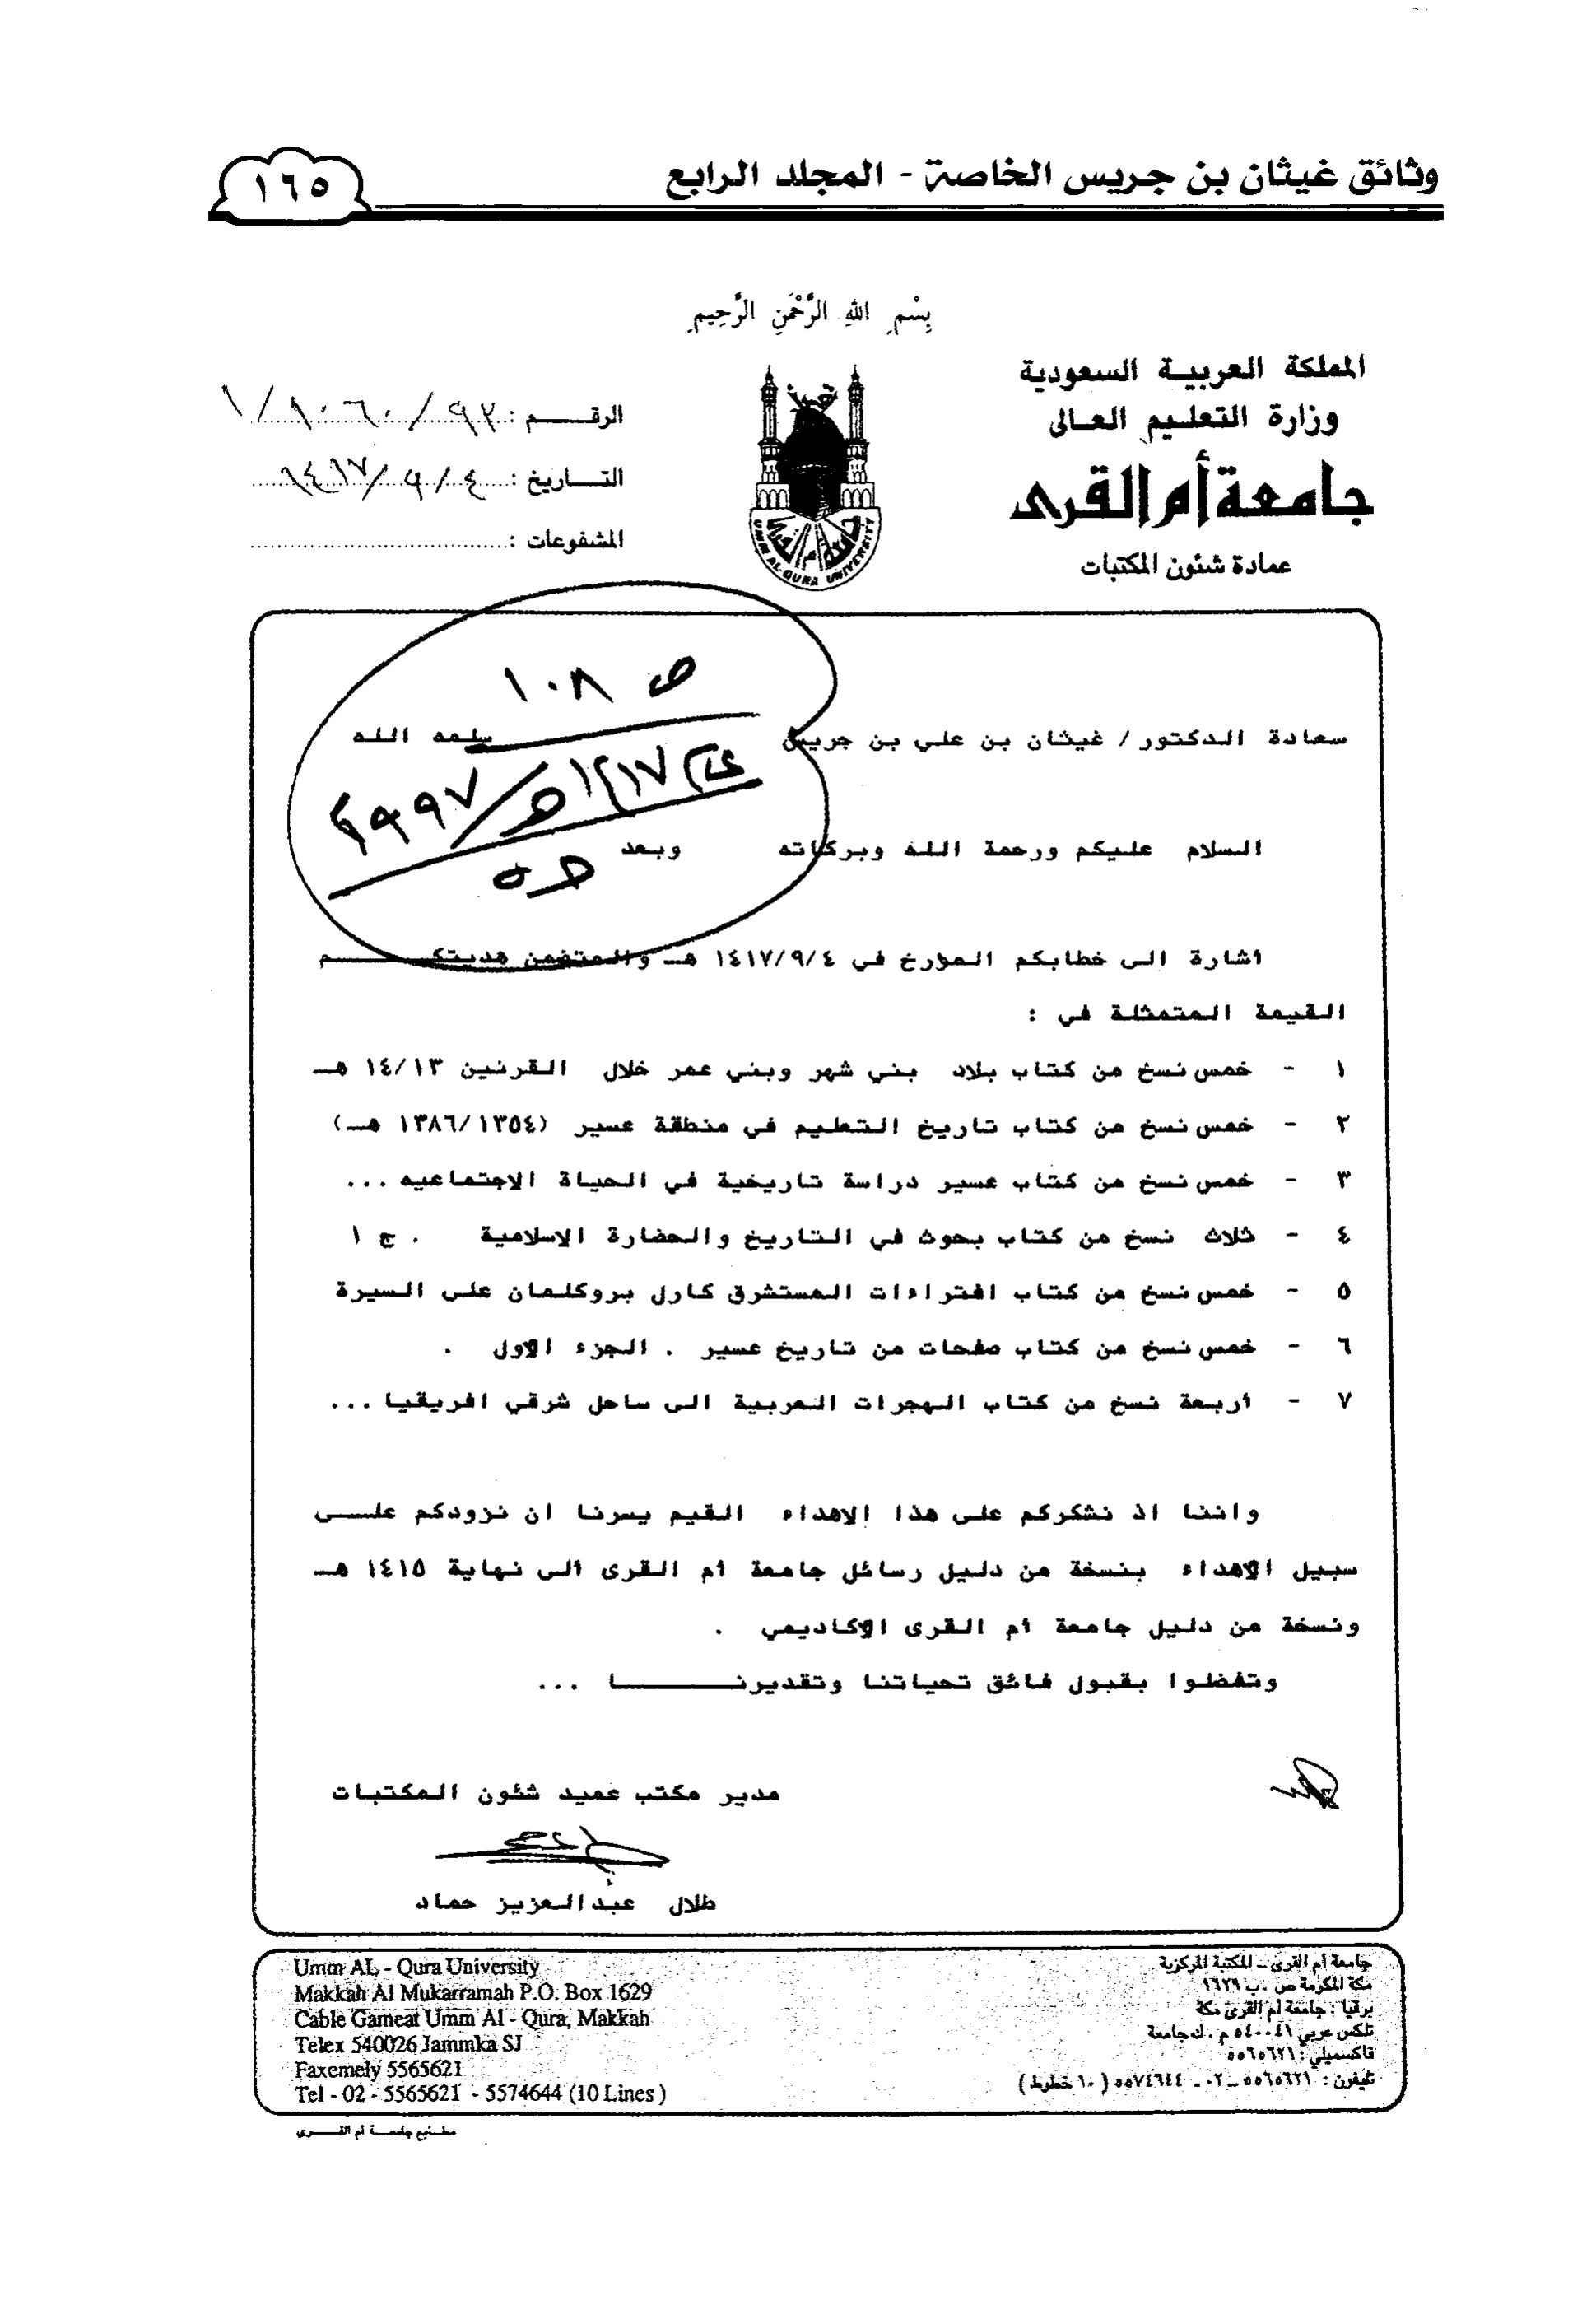 وثائق غيثان بن جريس الخاصة - المجلد الرابع
١٦٥
بِسْمِ اللهِ الرَّحْمَنِ الرَّحِيمِ
المملكة العربية السعودية
وزارة التعليم العالى
جامعة أم القرى
عمادة شئون المكتبات
الرقـــــم :
التـــاريخ : ١٤١٧/٩/٤
المشفوعات :
UMM AL-QURA UNIVERSITY
ص ١٠٨
عام ١٤١٧هـ/١٩٩٧م
سعادة الدكتور / غيثان بن علي بن جريس سلمه الله
السلام عليكم ورحمة الله وبركاته وبعد
أشارة الى خطابكم المؤرخ في ١٤١٧/٩/٤ هـ والمتضمن هديتكــــــم
القيمة المتمثلة في :
١ - خمس نسخ من كتاب بلاد بني شهر وبني عمر خلال القرنين ١٤/١٣ هـ
٢ - خمس نسخ من كتاب تاريخ التعليم في منطقة عسير (١٣٨٦/١٣٥٤ هـ)
٣ - خمس نسخ من كتاب عسير دراسة تاريخية في الحياة الاجتماعيه ...
٤ - ثلاث نسخ من كتاب بحوث في التاريخ والحضارة الاسلامية . ج ١
٥ - خمس نسخ من كتاب افتراءات المستشرق كارل بروكلمان على السيرة
٦ - خمس نسخ من كتاب صفحات من تاريخ عسير . الجزء الاول .
٧ - أربعة نسخ من كتاب الهجرات العربية الى ساحل شرقي افريقيا ...
واننا اذ نشكركم على هذا الاهداء القيم يسرنا ان نزودكم علـــى
سبيل الاهداء بنسخة من دليل رسائل جامعة أم القرى ألى نهاية ١٤١٥ هـ
ونسخة من دليل جامعة أم القرى الاكاديمي .
وتفضلوا بقبول فائق تحياتنا وتقديرنـــــــــا ...
مدير مكتب عميد شئون المكتبات
طلال عبدالعزيز حماد
جامعة أم القرى - المكتبة المركزية
مكة المكرمة ص . ب ١٦٢٩
برقيا : جامعة أم القرى مكة
تلكس عربي ٥٤٠٠٤١ م . ك جامعة
فاكسميلي : ٥٥٦٥٦٢١
تليفون : ٥٥٦٥٦٢١ - ٠٢ - ٥٥٧٤٦٤٤ ( ١٠ خطوط )
Umm AL - Qura University
Makkah Al Mukarramah P.O. Box 1629
Cable Gameat Umm Al - Qura, Makkah
Telex 540026 Jammka SJ
Faxemely 5565621
Tel - 02 - 5565621 - 5574644 (10 Lines )
مطـــابع جامعـــة أم القـــرى